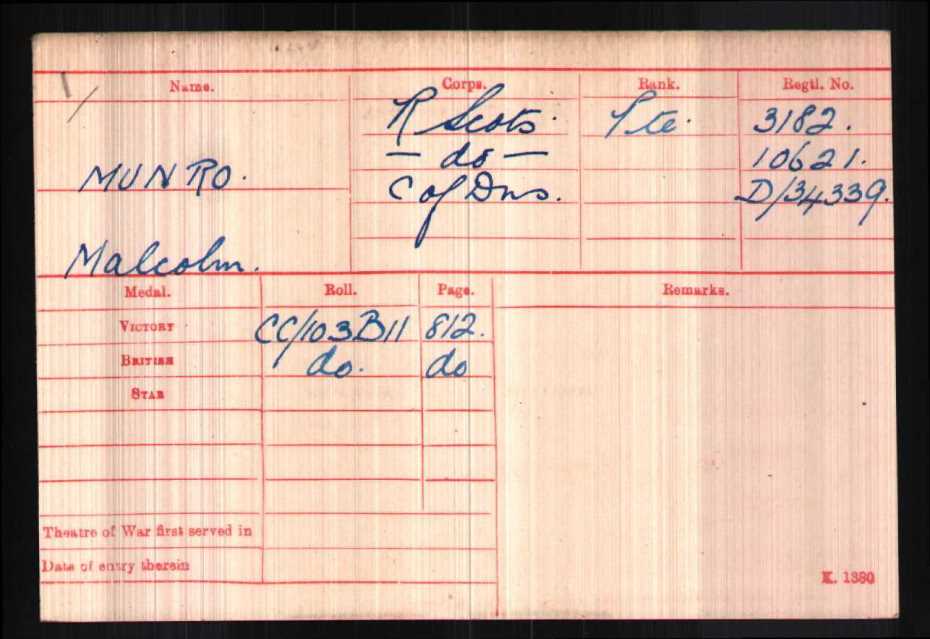 Name. Corps. Rank. Regtl. No.
R Scots. Pte. 3182.
— do — 10621.
MUNRO. C of Dns. D/34339.
Malcolm.
Medal. Roll. Page. Remarks.
VICTORY CC/103B11 812.
BRITISH do. do
STAR
Theatre of War first served in
Date of entry therein
K. 1380